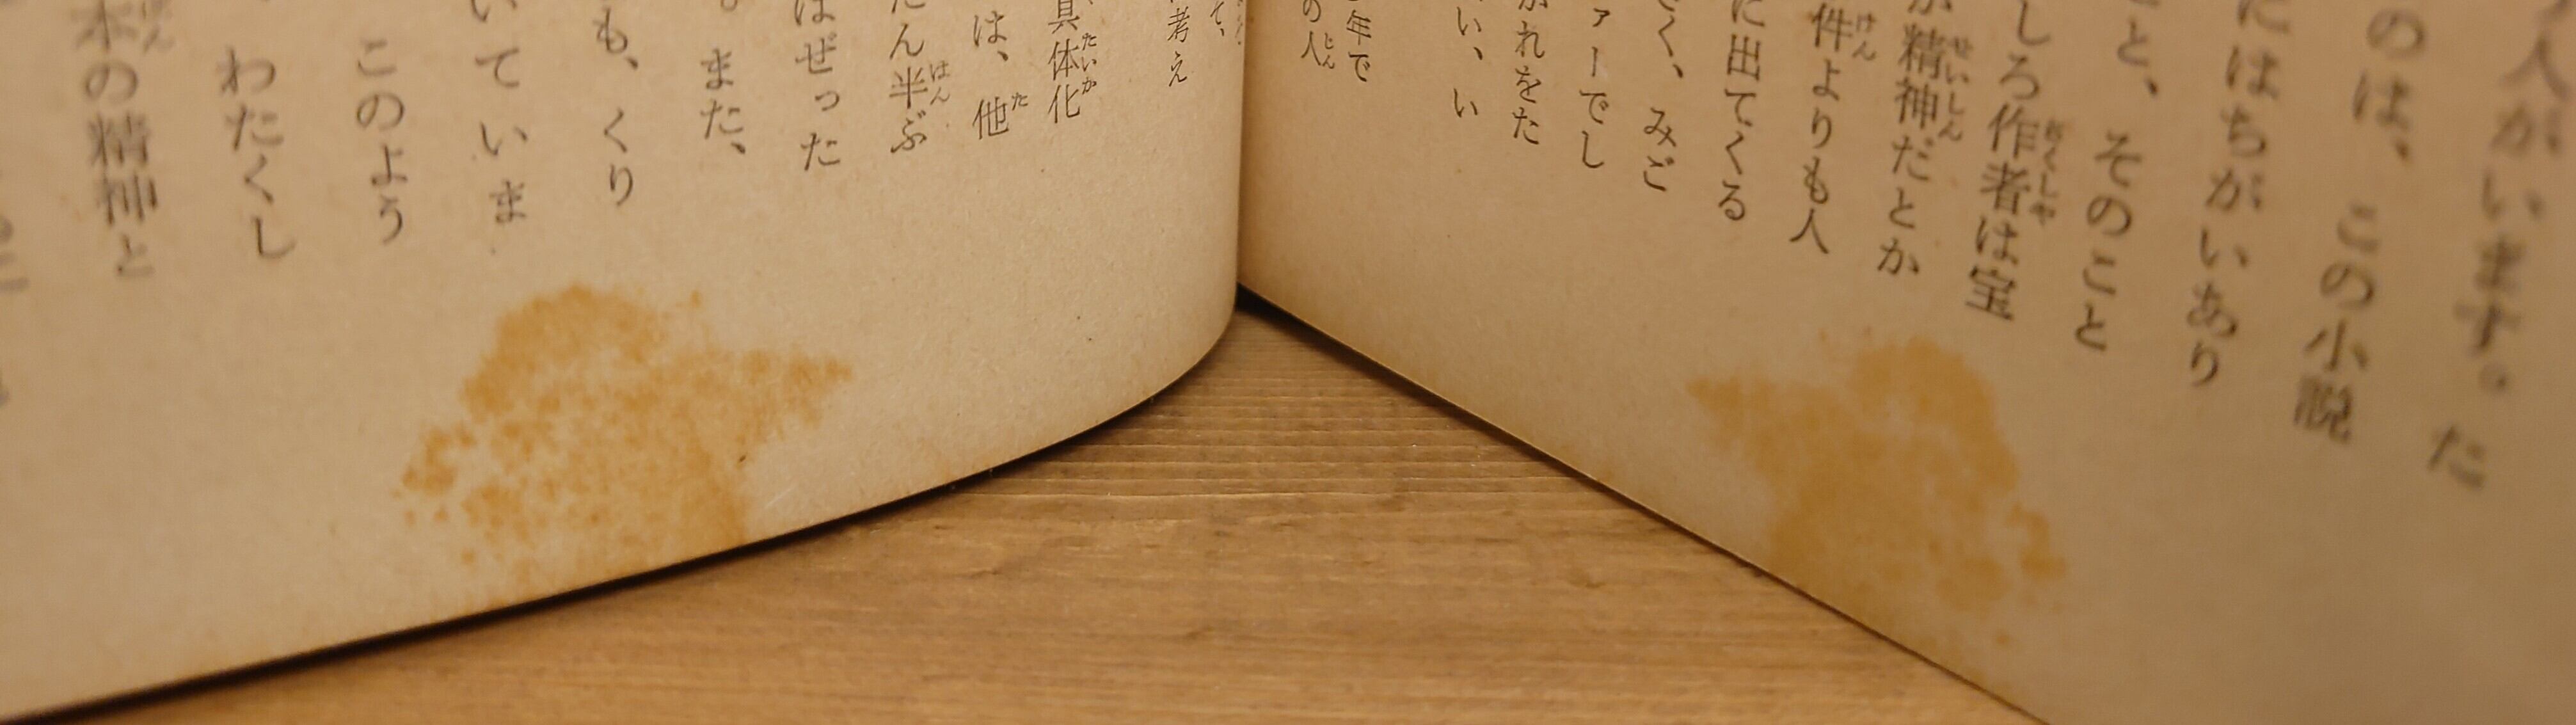 人がいます。た
のは、この小説
にはちがいあり
と、そのこと
しろ作者は宝
が精神だとか
件よりも人
に出てくる
く、みご
ァーでし
かれをた
い、い
年で
の人
て、
考え
具体化
は、他
たん半ぶ
はぜった
。また、
も、くり
いていま
このよう
わたくし
本の精神と